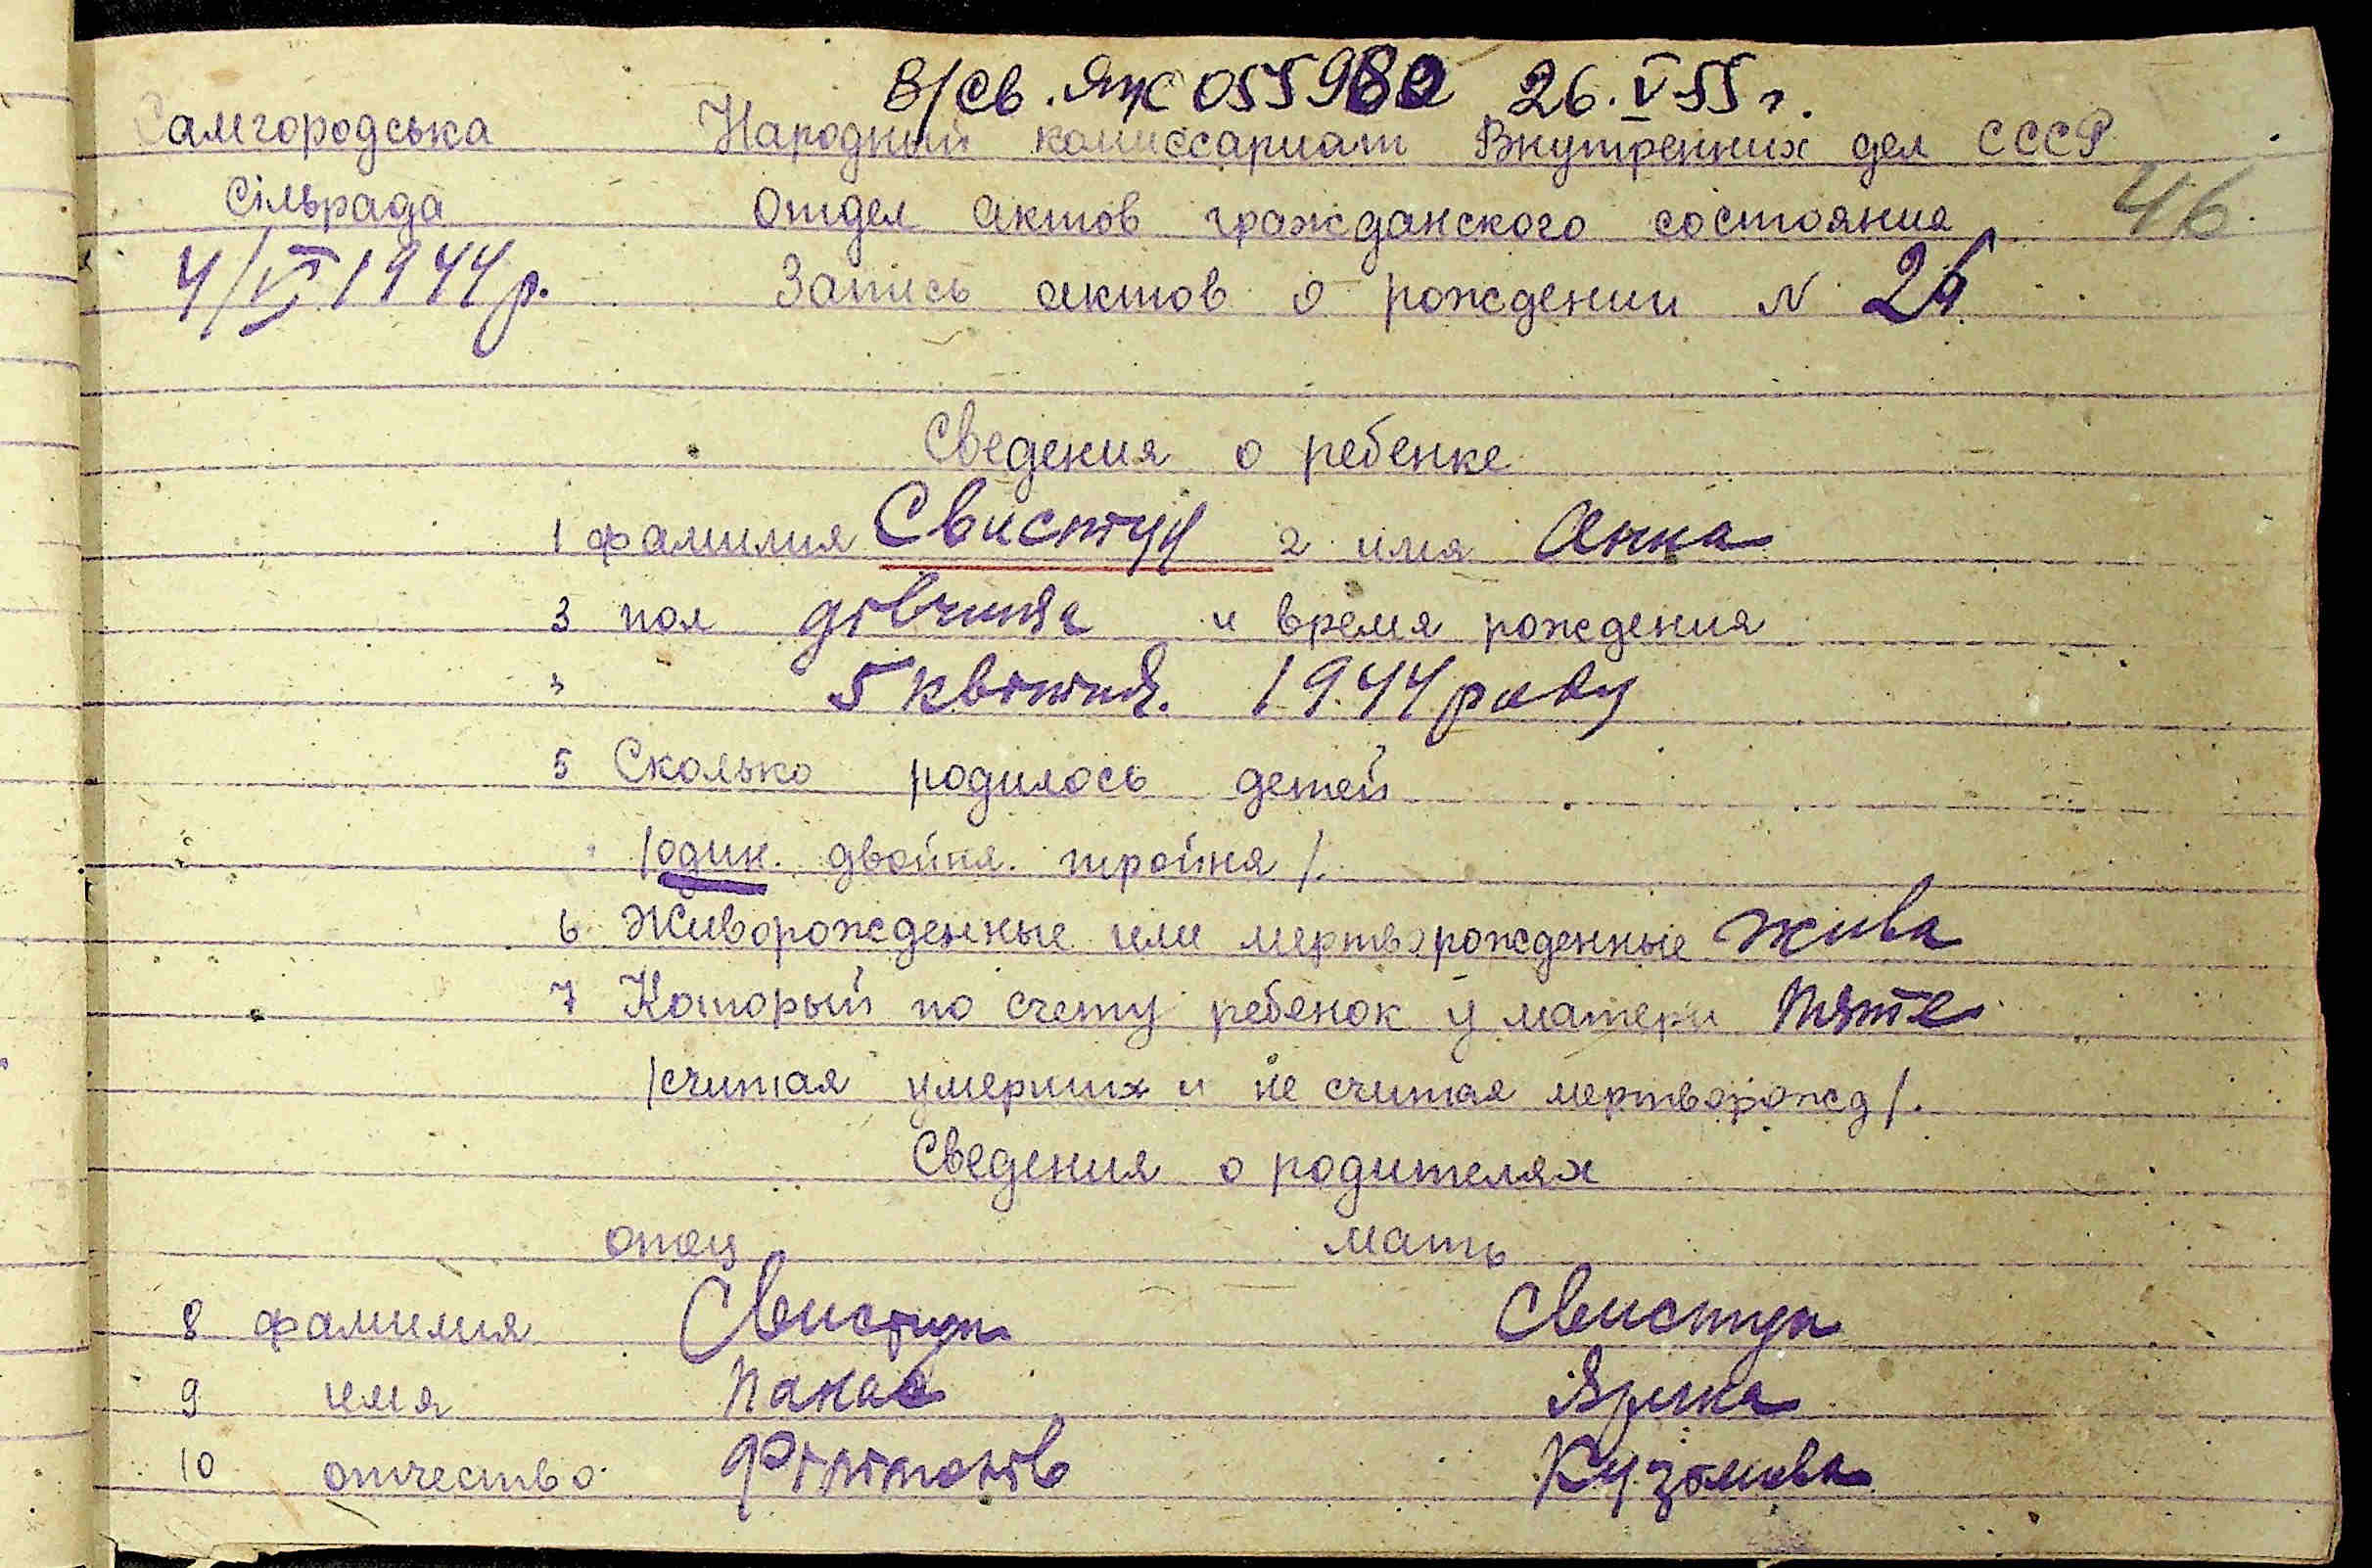 В/св. ЯЖ 055980 26.V 55 г.
Самгородська Народный комиссариат Внутренних дел СССР
Сільрада Отдел актов гражданского состояния 46.
4/VI 1944 р. Запись актов о рождении N 26
Сведения о ребенке
1 фамилия Свистун 2 имя Анна
3 пол дівчина и время рождения
5 квітня. 1944 року
5 Сколько родилось детей
/один. двойня. тройня/.
6 Живорожденные или мертворожденные жива
7 Который по счету ребенок у матери пяте
/считая умерших и не считая мертворожд/.
Сведения о родителях
отец мать
8 фамилия Свистун Свистун
9 имя Панас Ярина
10 отчество Кузьмівна